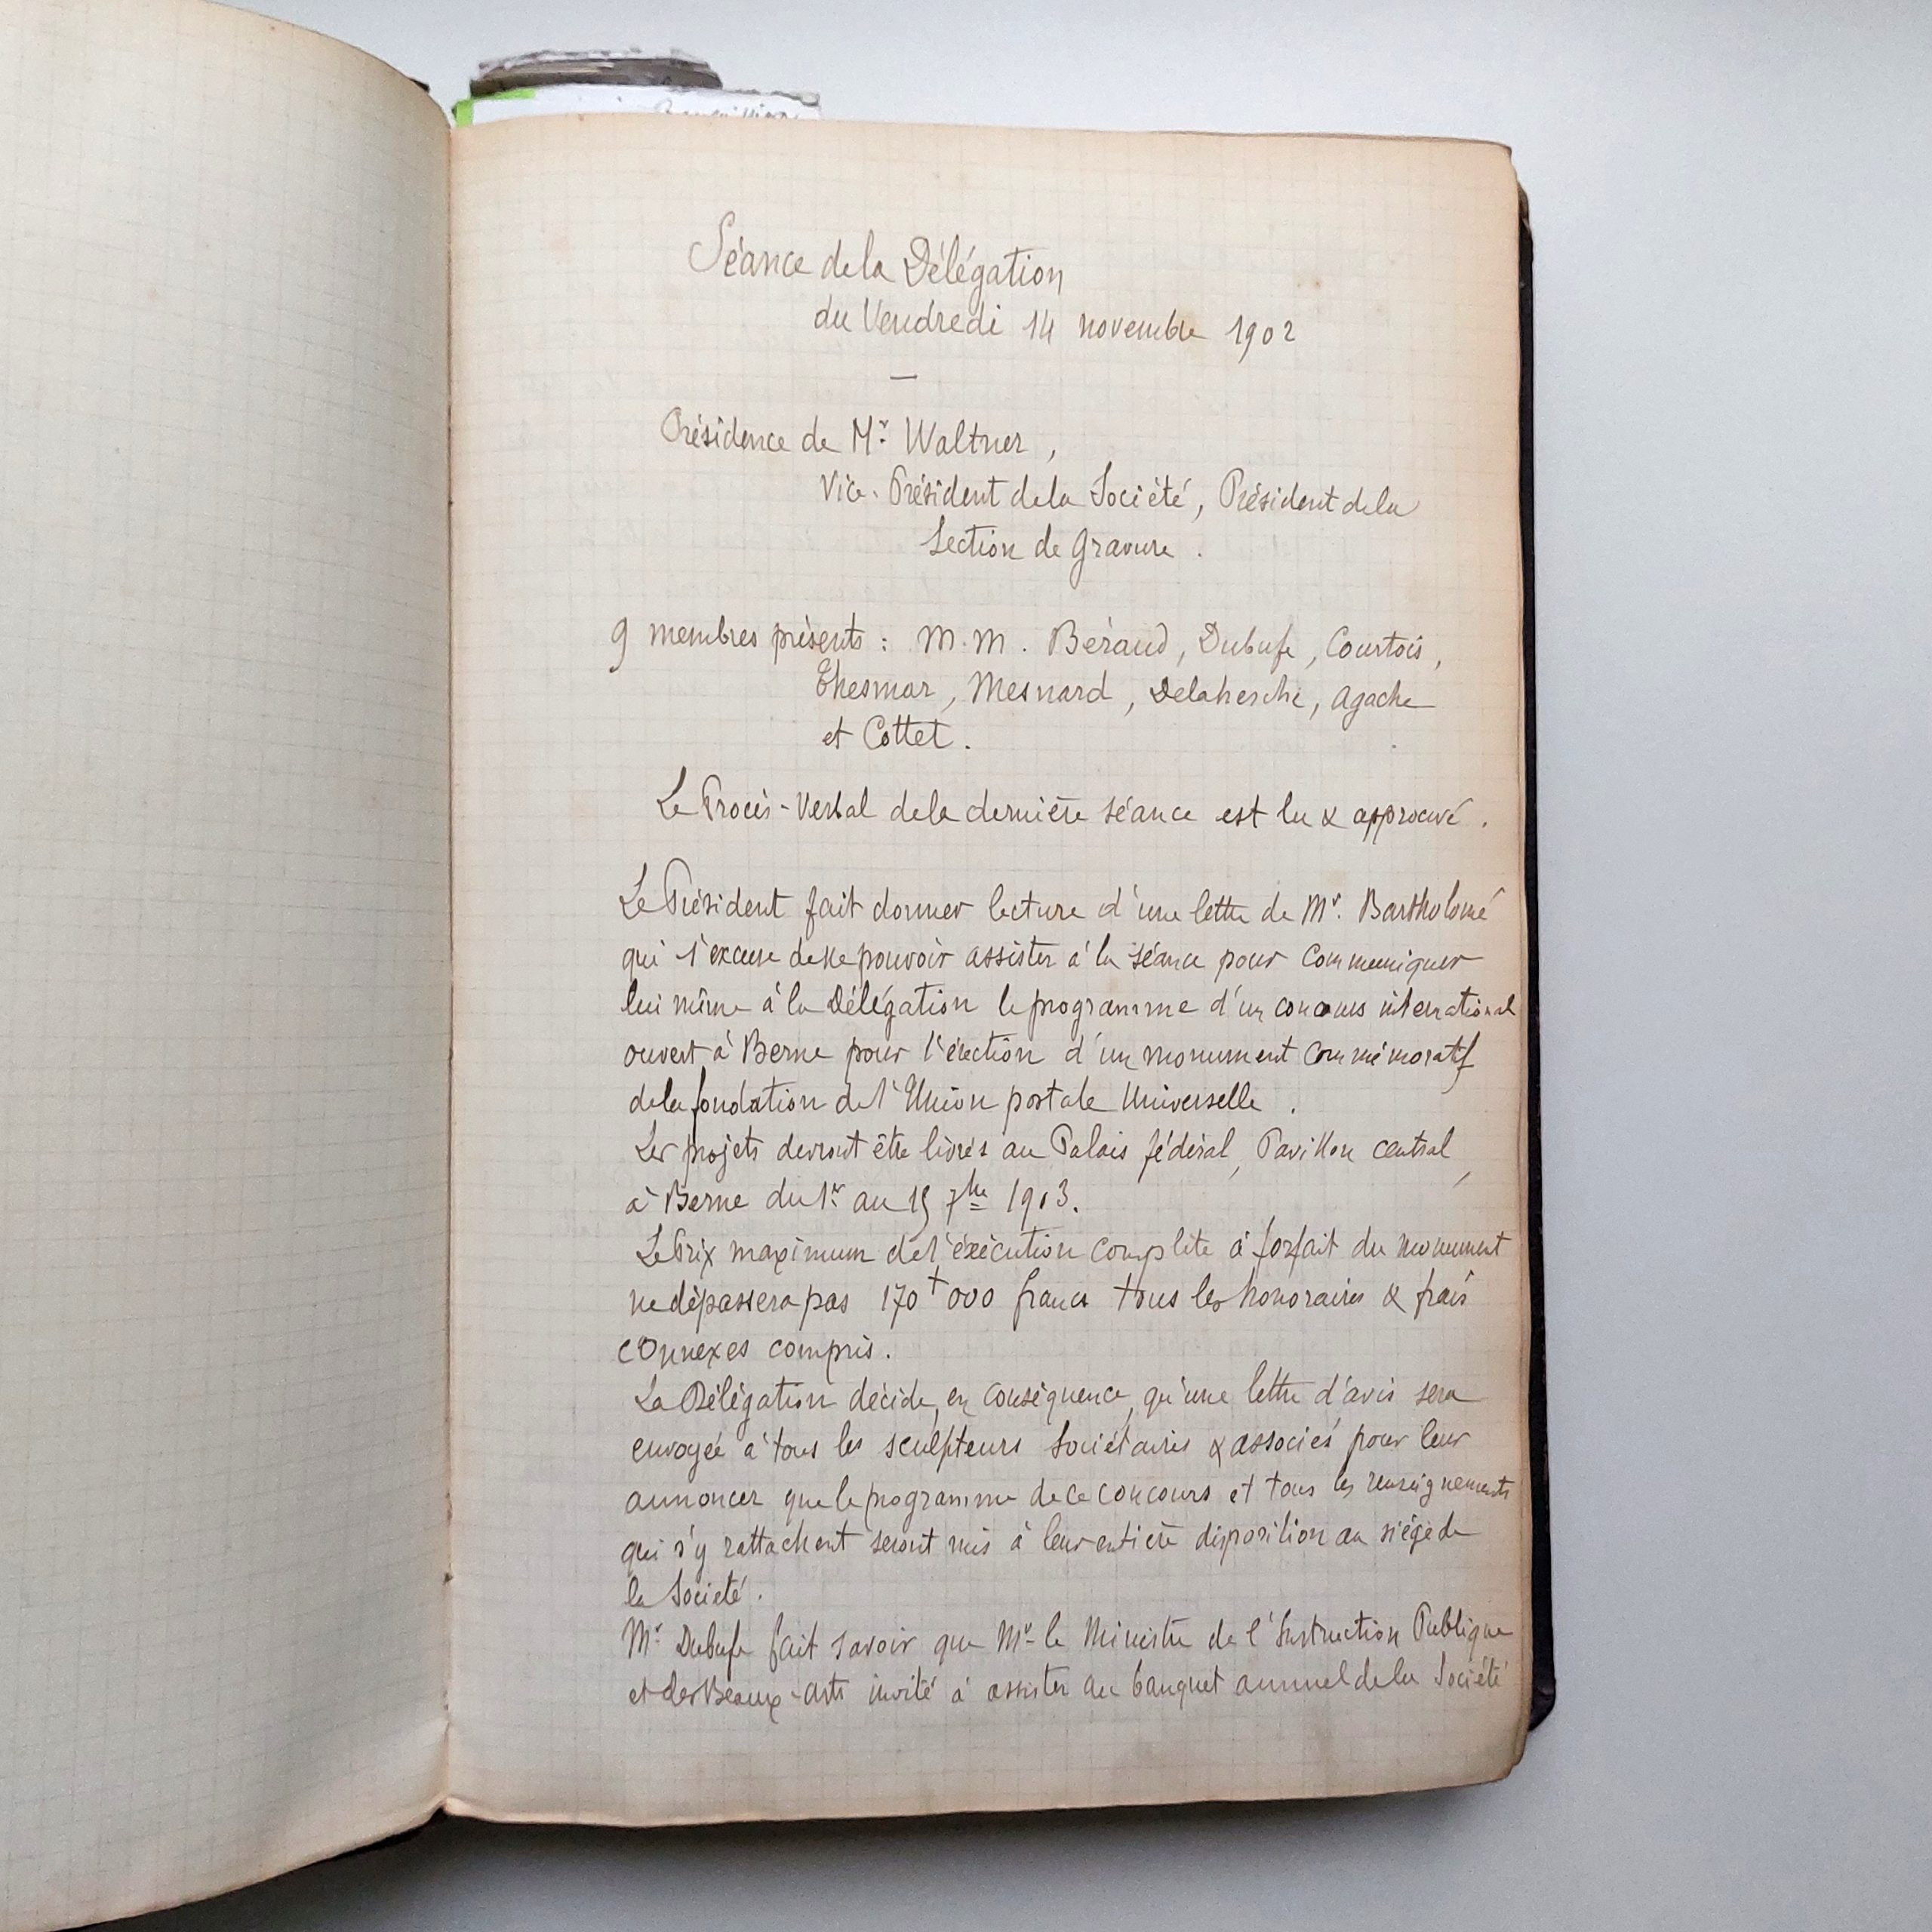 Séance de la Délégation
du Vendredi 14 novembre 1902
—
Présidence de Mr Waltner,
Vice-Président de la Société, Président de la
Section de Gravure.
9 membres présents : M.M. Béraud, Dubufe, Courtois,
Thesmar, Mesnard, Delaherche, Agache
et Cottet.
Le Procès-Verbal de la dernière séance est lu & approuvé.
Le Président fait donner lecture d'une lettre de Mr. Bartholomé
qui s'excuse de ne pouvoir assister à la séance pour communiquer
lui même à la Délégation le programme d'un concours international
ouvert à Berne pour l'érection d'un monument commémoratif
de la fondation de l'Union postale Universelle.
Les projets devront être livrés au Palais fédéral, Pavillon central,
à Berne du 1er au 15 7bre 1903.
Le Prix maximum de l'éxécution complète à forfait du monument
ne dépassera pas 170+000 francs tous les honoraires & frais
connexes compris.
La Délégation décide, en conséquence, qu'une lettre d'avis sera
envoyée à tous les sculpteurs Sociétaires & associés pour leur
annoncer que le programme de ce concours et tous les renseignements
qui s'y rattachent seront mis à leur entière disposition au siège de
la Société.
Mr Dubufe fait savoir que Mr le Ministre de l'Instruction Publique
et des Beaux-arts invité à assister au banquet annuel de la Société